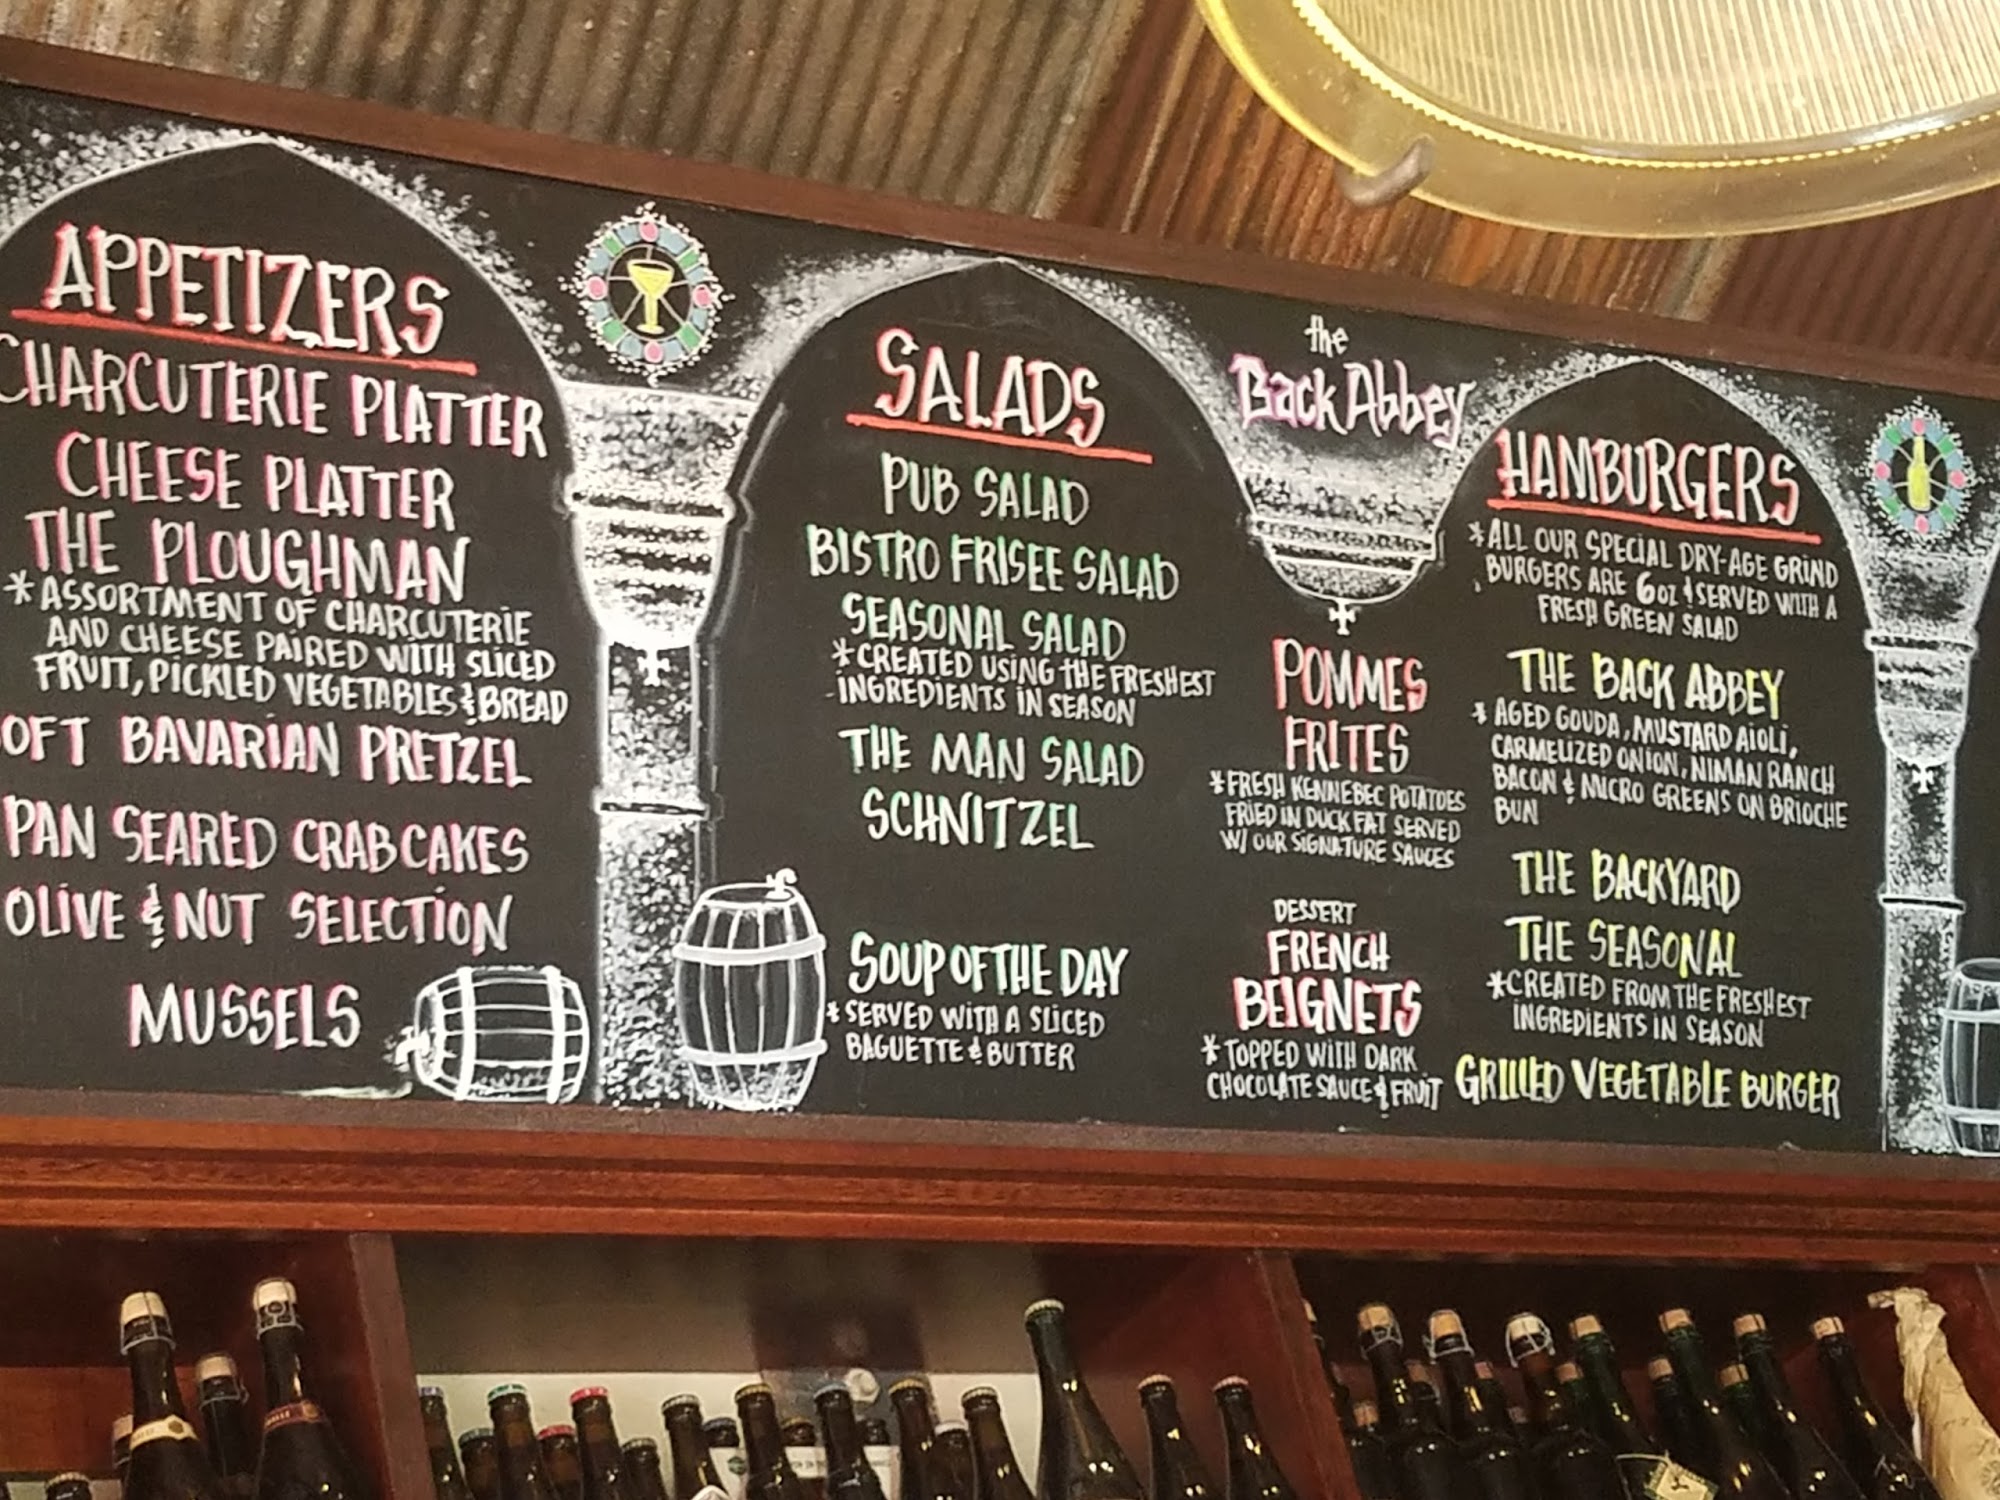 APPETIZERS
CHARCUTERIE PLATTER
CHEESE PLATTER
THE PLOUGHMAN
*ASSORTMENT OF CHARCUTERIE
AND CHEESE PAIRED WITH SLICED
FRUIT, PICKLED VEGETABLES & BREAD
OFT BAVARIAN PRETZEL
PAN SEARED CRABCAKES
OLIVE & NUT SELECTION
MUSSELS
SALADS
PUB SALAD
BISTRO FRISEE SALAD
SEASONAL SALAD
*CREATED USING THE FRESHEST
INGREDIENTS IN SEASON
THE MAN SALAD
SCHNITZEL
SOUP OF THE DAY
*SERVED WITH A SLICED
BAGUETTE & BUTTER
the
Back Abbey
POMMES
FRITES
*FRESH KENNEBEC POTATOES
FRIED IN DUCK FAT SERVED
W/ OUR SIGNATURE SAUCES
DESSERT
FRENCH
BEIGNETS
*TOPPED WITH DARK
CHOCOLATE SAUCE & FRUIT
HAMBURGERS
*ALL OUR SPECIAL DRY-AGE GRIND
BURGERS ARE 6oz & SERVED WITH A
FRESH GREEN SALAD
THE BACK ABBEY
*AGED GOUDA, MUSTARD AIOLI,
CARMELIZED ONION, NIMAN RANCH
BACON & MICRO GREENS ON BRIOCHE
BUN
THE BACKYARD
THE SEASONAL
*CREATED FROM THE FRESHEST
INGREDIENTS IN SEASON
GRILLED VEGETABLE BURGER